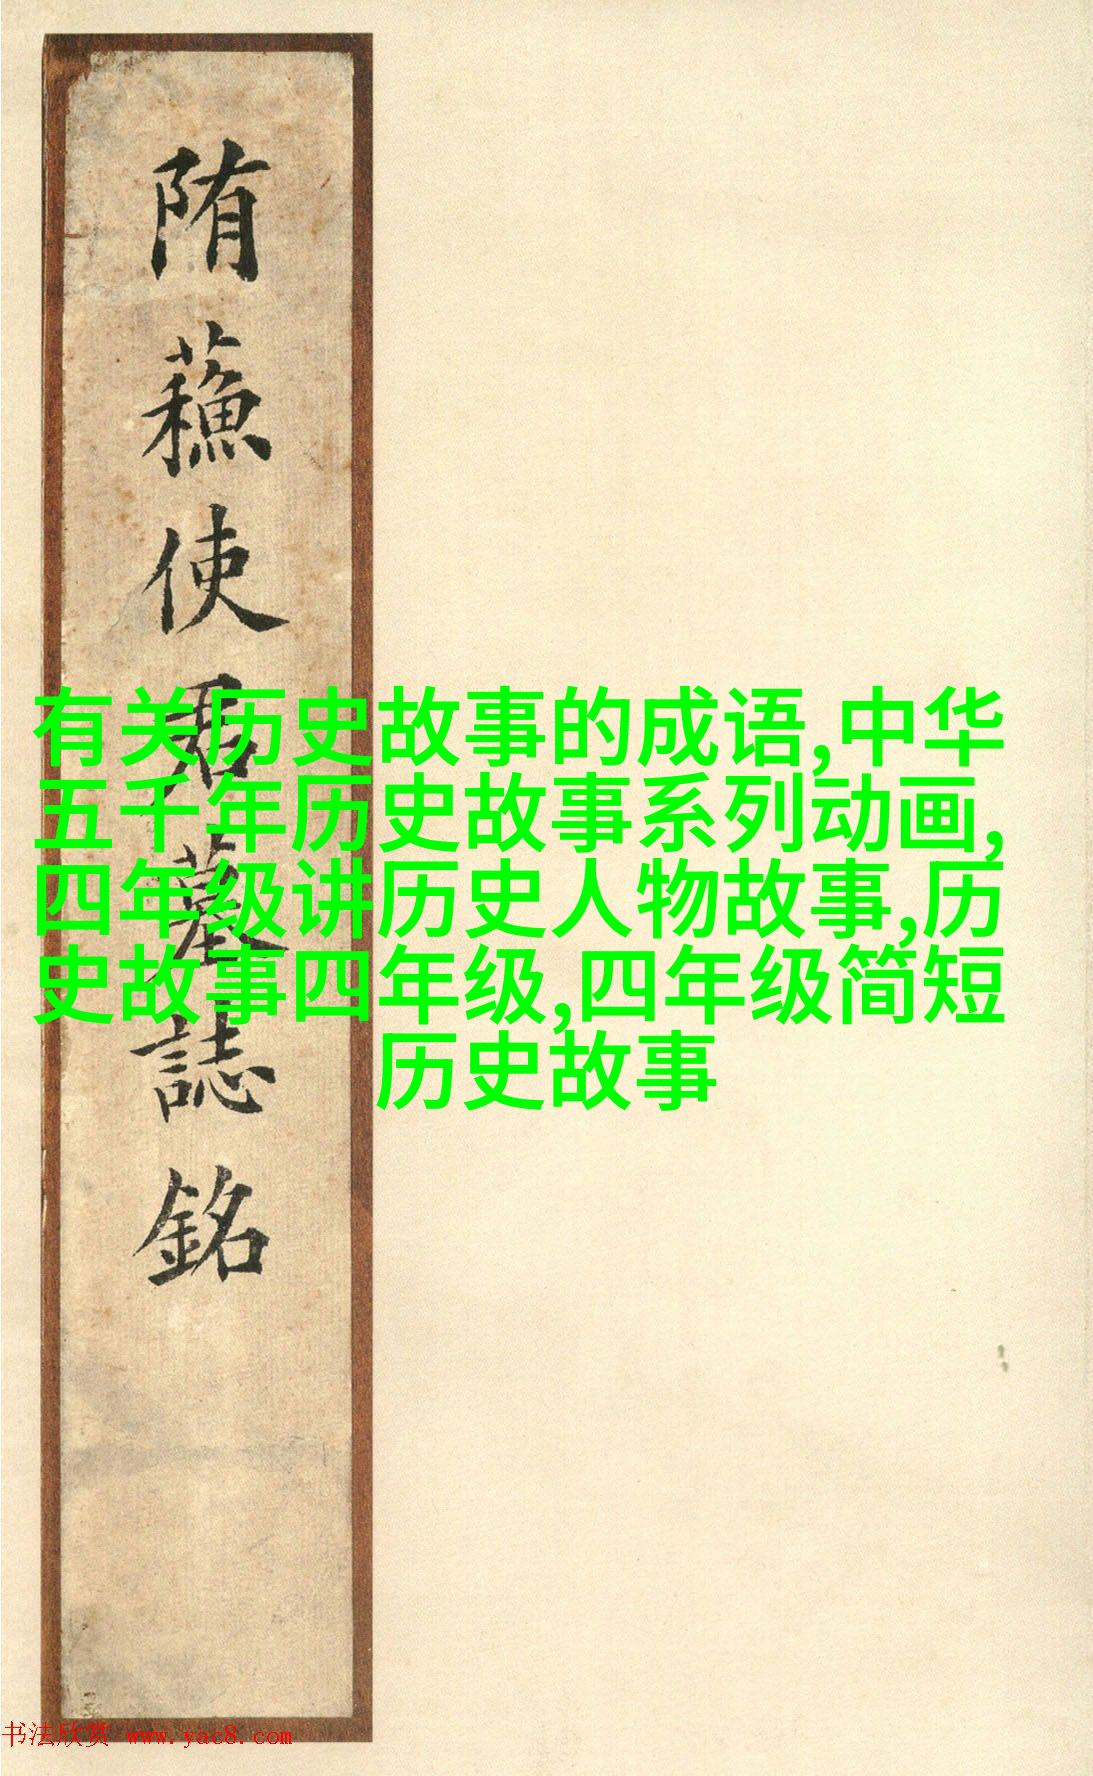 隋蘓使君墓誌銘
有关历史故事的成语,中华
五千年历史故事系列动画,
四年级讲历史人物故事,历
史故事四年级,四年级简短
历史故事
书法欣赏 www.yac8.com